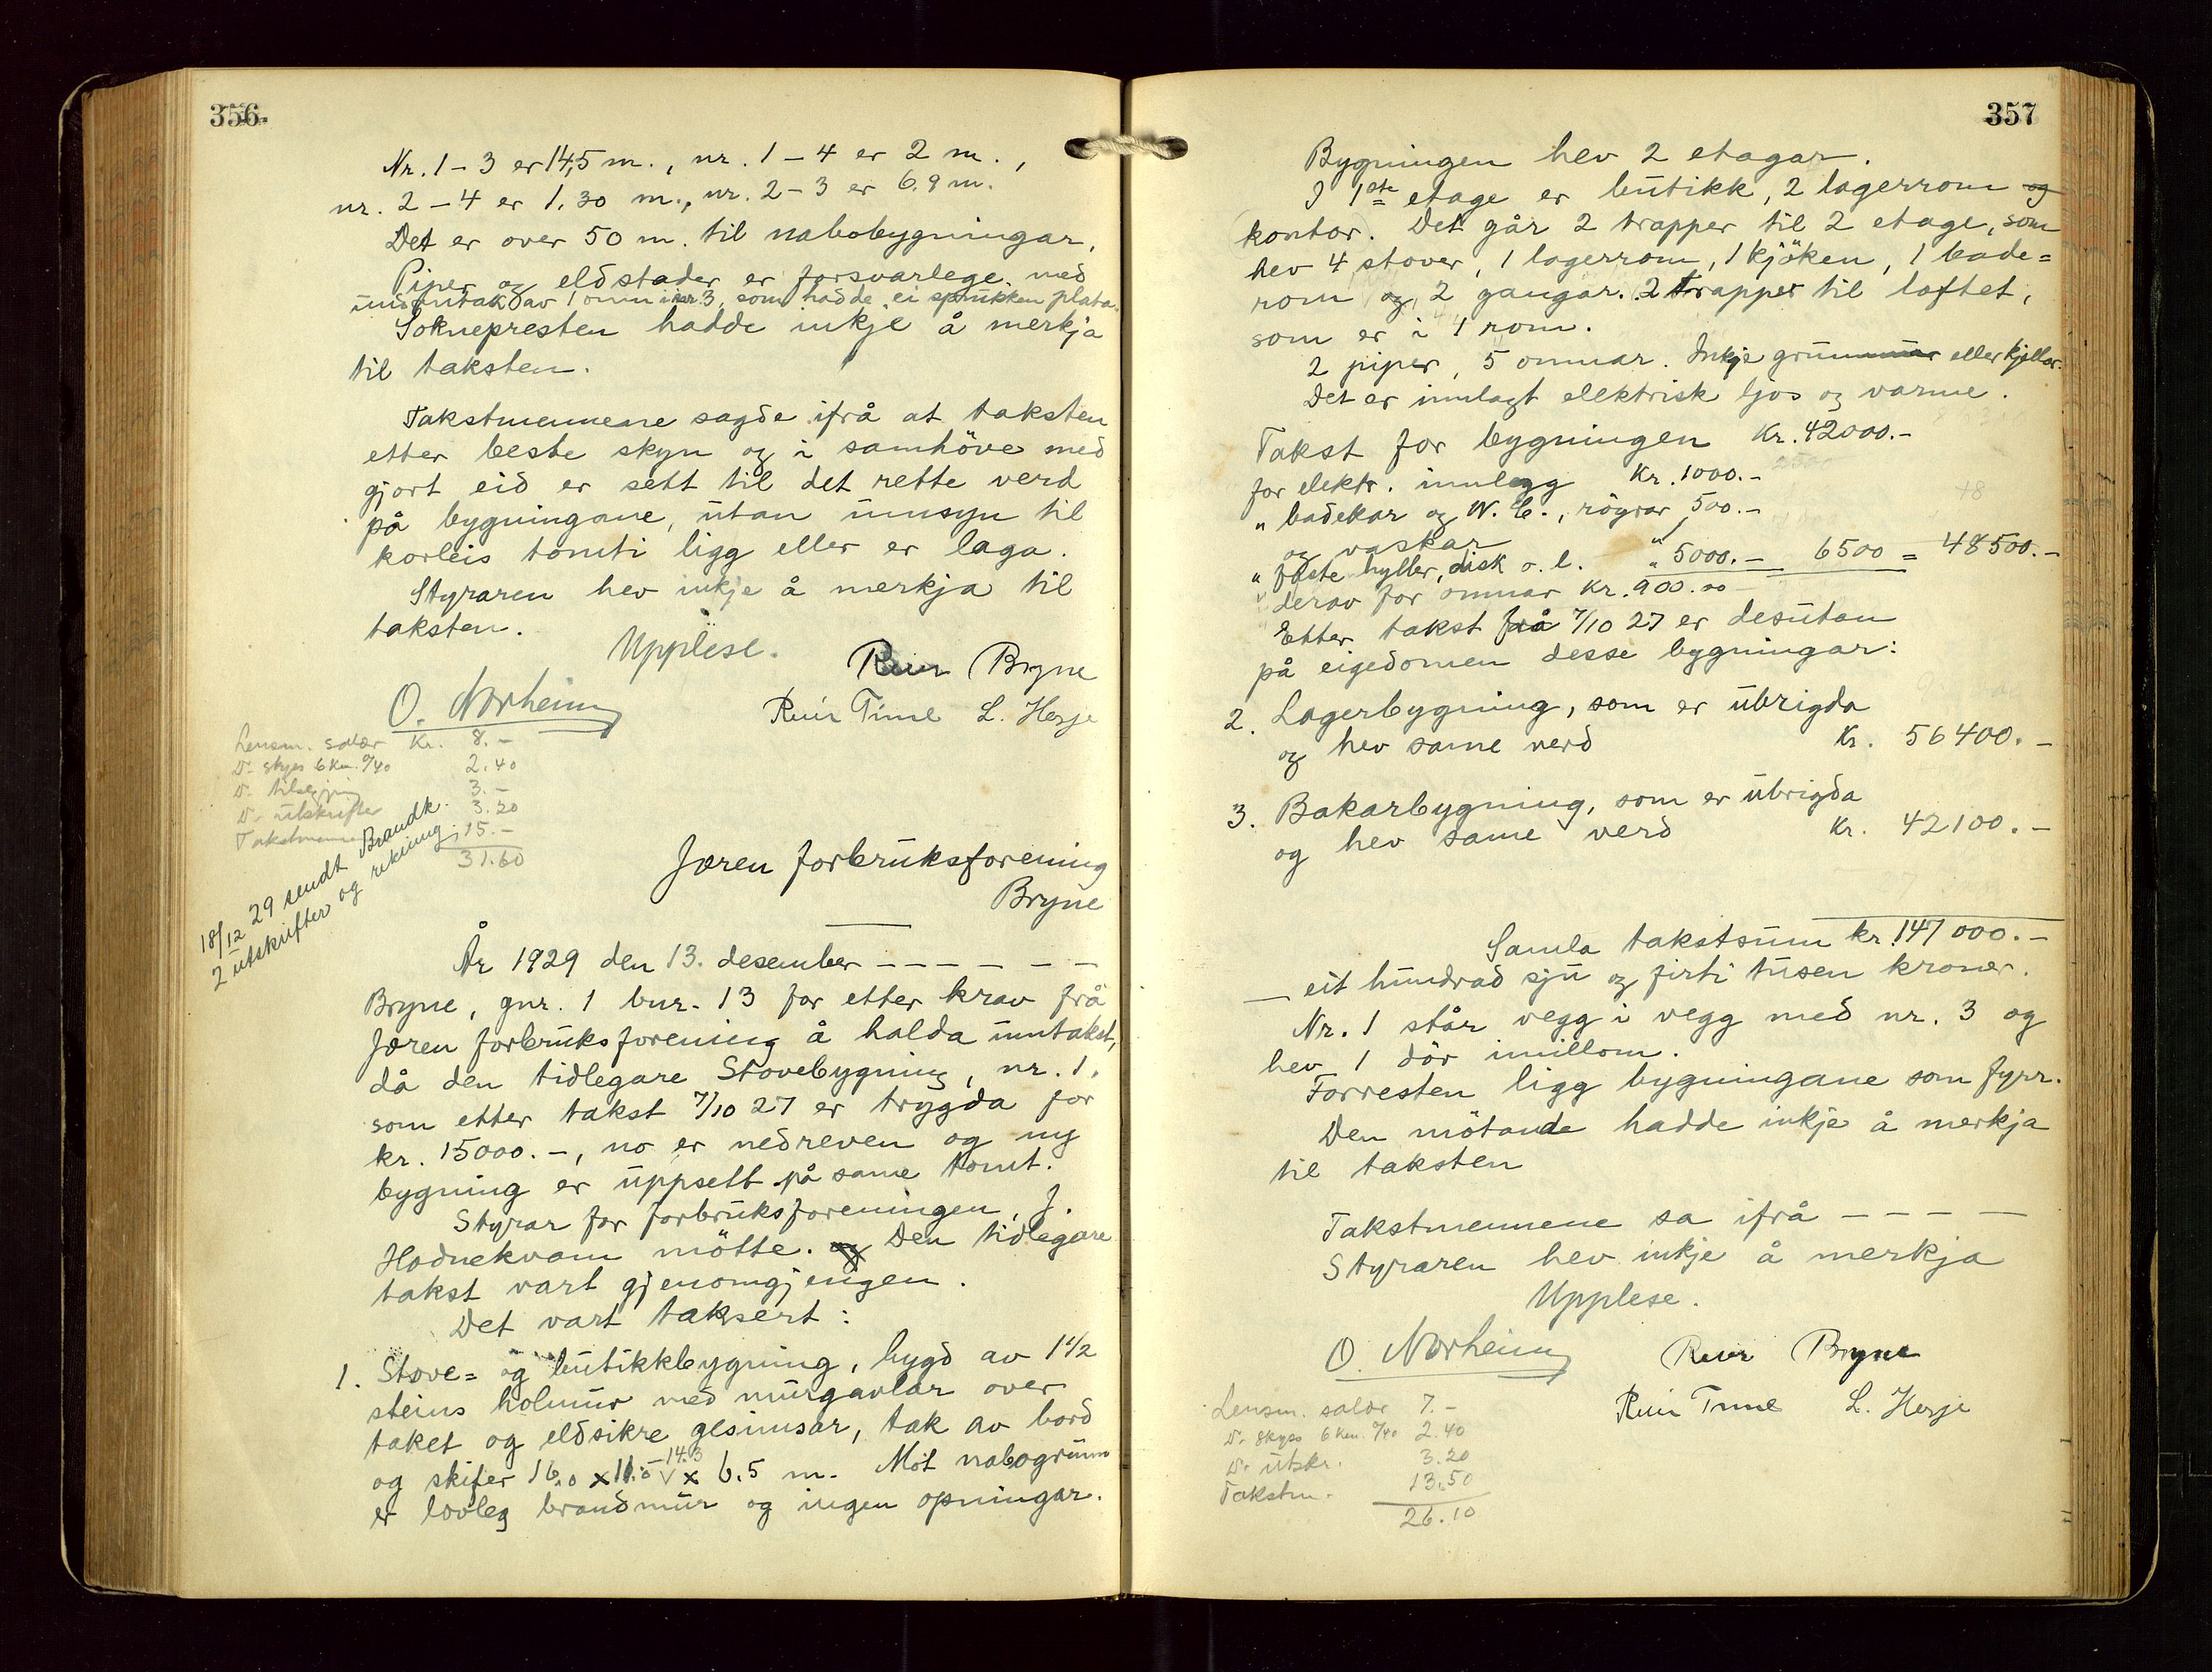 356.
Nr. 1 – 3 er 14,5 m., nr. 1 – 4 er 2 m.,
nr. 2 – 4 er 1,30 m., nr. 2 – 3 er 6,9 m.
Det er over 50 m. til nabobygningar.
Piper og eldstader er forsvarlege, med
undantak av 1 omn i nr. 3, som hadde ei sprukken plata.
Soknepresten hadde inkje å merkja
til taksten.
Takstmennene sagde ifrå at taksten
etter beste skyn og i samhöve med
gjort eid er sett til det rette verd
på bygningane, utan umsyn til
korleis tomti ligg eller er laga.
Styraren hev inkje å merkja til
taksten.
Upplese.
Reier Bryne
O. Norheim
Reier Time L. Herje
Lensm. salær Kr. 8.–
D. skyss 6 km. 0/40 2.40
D. tilsegjing 3.–
D. utskrifter 3.20
Takstmenn 15.–
31.60
18/12 29 sendt Brandk.
2 utskrifter og rekning
Jæren forbruksforening
Bryne
År 1929 den 13. desember – – – – – –
Bryne, gnr. 1 bnr. 13 for etter krav frå
Jæren forbruksforening å halda umtakst,
då den tidlegare Stovebygning, nr. 1,
som etter takst 7/10 27 er trygda for
kr. 15000.–, no er nedreven og ny
bygning er uppsett på same tomt.
Styrar for forbruksforeningen, J.
Hodnekvam mötte. og Den tidlegare
takst vart gjenomgjengen.
Det vart taksert:
1. Stove= og butikkbygning, bygd av 1 1/2
steins holmur med murgavlar over
taket og eldsikre gesimsar, tak av bord
og skifer 16,0 x 11,0 – 14,3 x 6,5 m. Mot nabogrunn
er lovleg brandmur og ingen opningar.
357
Bygningen hev 2 etagar.
I 1ste etage er butikk, 2 lagerrom og
kontor. Det går 2 trapper til 2 etage, som
hev 4 stover, 1 lagerrom, 1 kjöken, 1 bade=
rom og 2 gangar. 2 trapper til loftet,
som er i 1 rom.
2 piper, 5 omnar. Inkje grunnmur eller kjellar.
Det er innlagt elektrisk ljos og varme.
Takst for bygningen Kr. 42000.–
for elektr. innlegg Kr. 1000.–
" badekar og W.C., röyrar 500.–
og vaskar
" faste hyller, disk o. l. " 5000.– 6500 = 48500.–
" derav for omnar Kr. 900.00
Etter takst frå 7/10 27 er desutan
på eigedomen desse bygningar:
2. Lagerbygning, som er ubrigda
og hev same verd Kr. 56400.–
3. Bakarbygning, som er ubrigda
og hev same verd Kr. 42100.–
Samla takstsum kr. 147 000.–
– eit hundrad sju og firti tusen kroner.
Nr. 1 står vegg i vegg med nr. 3 og
hev 1 dör imillom.
Forresten ligg bygningane som fyrr.
Den mötande hadde inkje å merkja
til taksten
Takstmennene sa ifrå – – – –
Styraren hev inkje å merkja
Upplese.
O. Norheim Reier Bryne
Reier Time L. Herje
Lensm. salær 7.–
D. skyss 6 km. 0/40 2.40
D. utskr. 3.20
Takstm. 13.50
26.10